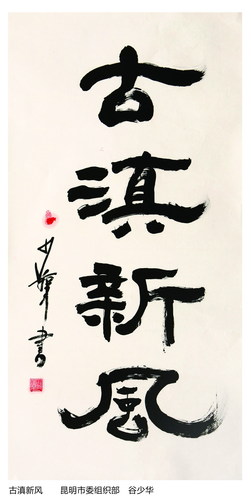 古滇新风
少华书
古滇新风 昆明市委组织部 谷少华